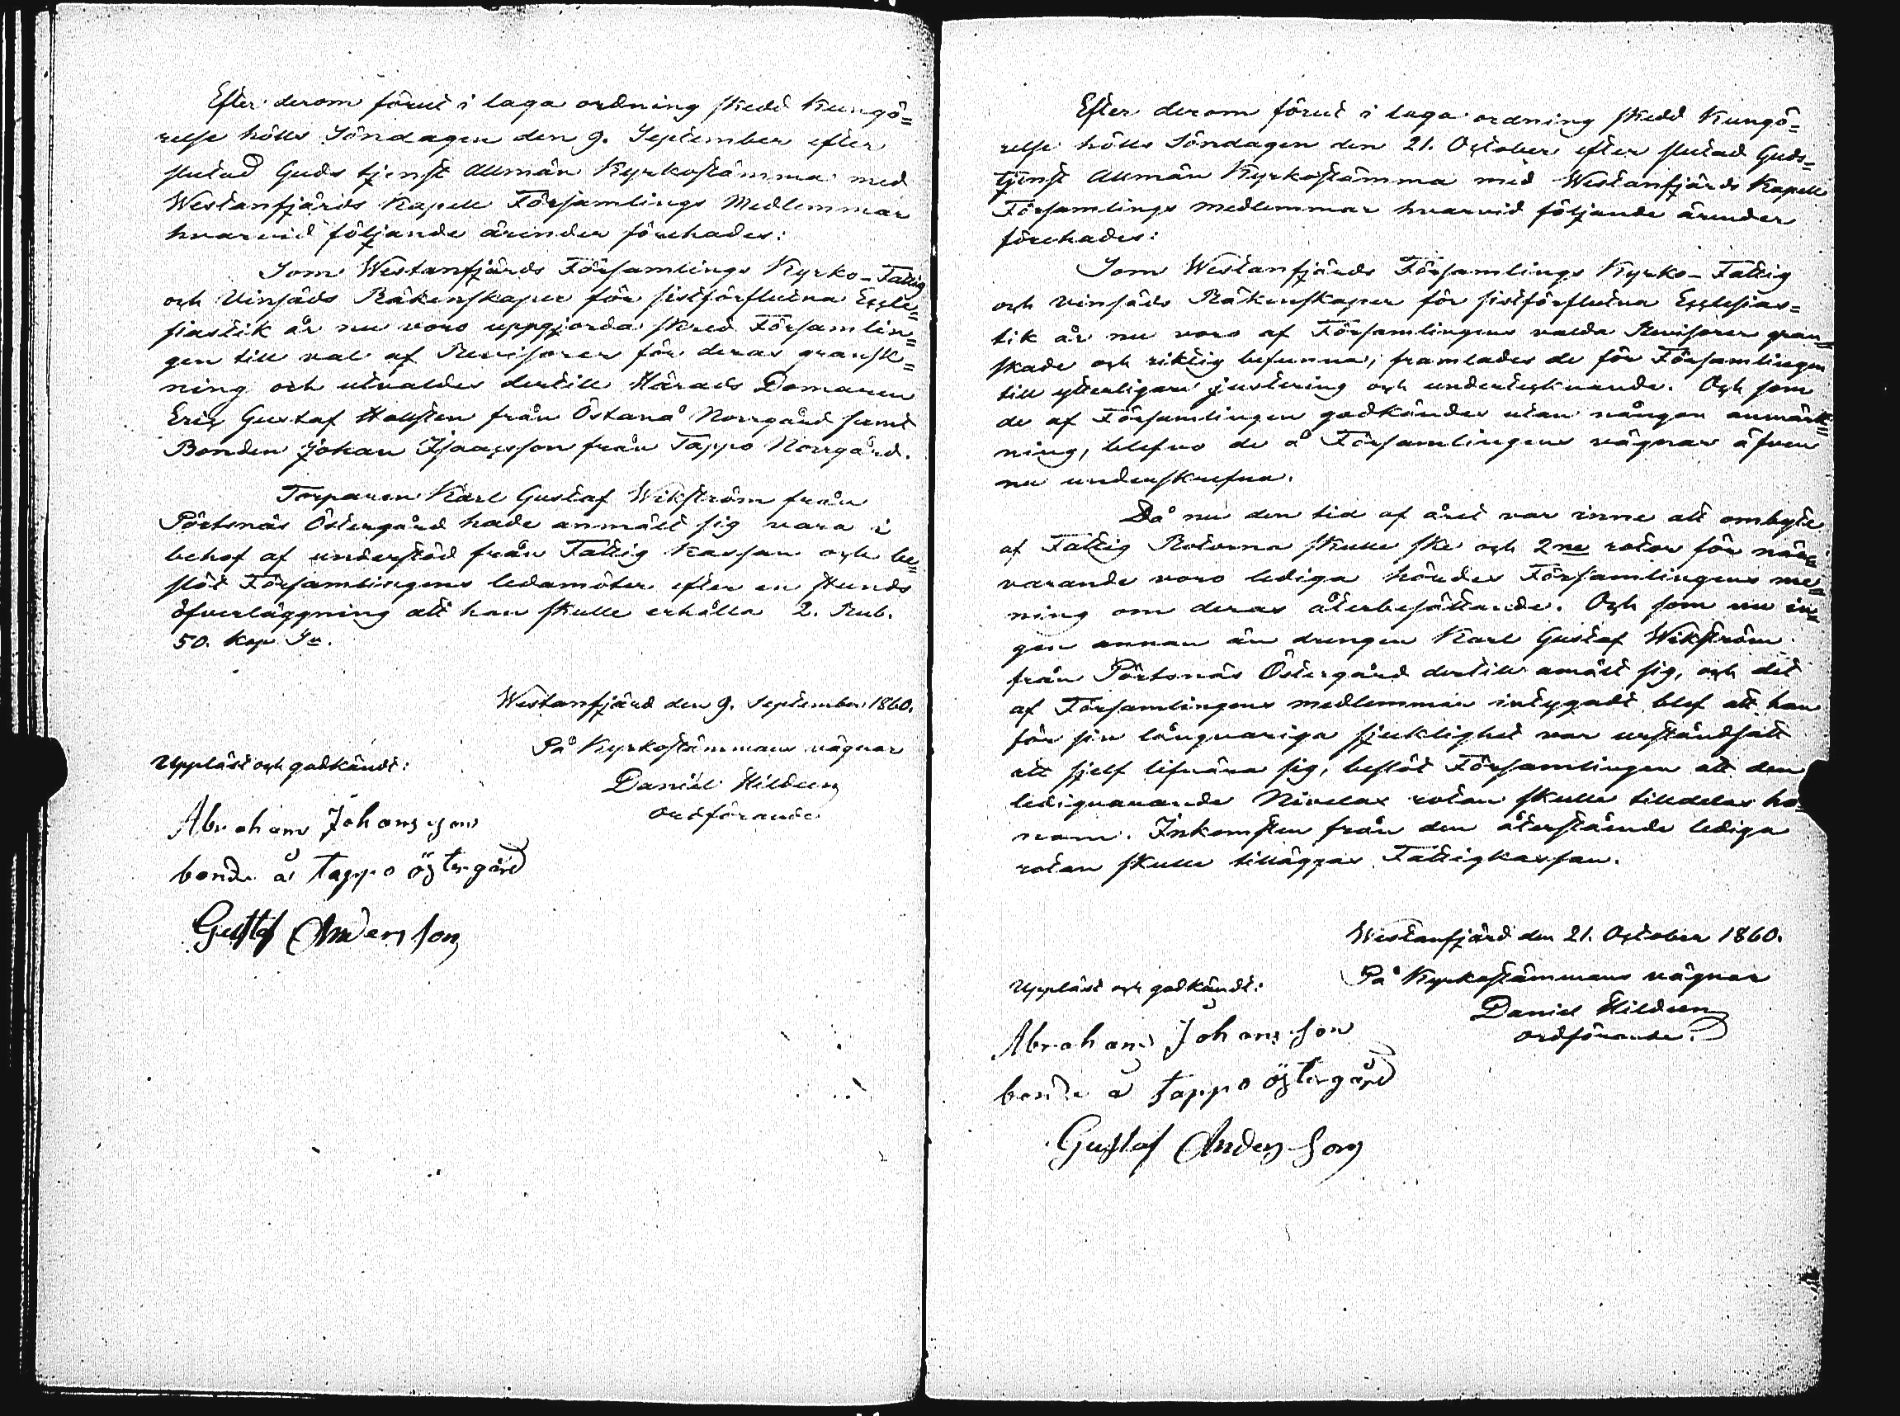 Efter derom förut i laga ordning skedd Kungö=
relse hölls Söndagen den 9. September efter
slutad Guds tjenst Allmän Kyrkostämma med
Westanfjärds Kapell Församlings Medlemmar
hvarvid följande ärender förehades:
Som Westanfjärds Församlings Kyrko- Fattig
och Vinsäds Räkenskaper för sistförflutna Eccle=
siastik år nu voro uppgjorda skred Församlin=
gen till val af Revisorer för deras gransk=
ning och utvaldes dertill Härads Domaren
Eric Gustaf Holsten från Östanå Norrgård samt
Bonden Johan Isaacsson från Tappo Norrgård.
Torparen Karl Gustaf Wikström från
Pörtsnäs Östergård hade anmält sig vara i
behof af understöd från Fattig Kassan och be=
slöt Församlingens ledamöter efter en stunds
öfverläggning att han skulle erhålla 2. Rub.
50. Kop. Sr.
Westanfjärd den 9. September 1860.
På Kyrkostämmans vägnar
Daniël Hildeen
Ordförande
Uppläst och godkändt:
Abraham Johansson
bonde å tappo östergård
Gustaf Andersson
Efter derom förut i laga ordning skedd Kungö=
relse hölls Söndagen den 21. October efter slutad Guds=
tjenst Allmän Kyrkostämma med Westanfjärds Kapell
Församlings medlemmar hvarvid följande ärender
förehades:
Som Westanfjärds Församlings Kyrko- Fattig
och Vinsäds Räkenskaper för sistförflutna Ecclesias=
tik år nu voro af Församlingens valda Revisorer gran=
skade och riktig befunna, framlades de för Församlingen
till ytterligare justering och undertecknande. Och som
de af Församlingen godkändes utan någon anmärk=
ning, blefvo de å Församlingens vägnar äfven
nu underskrefna.
Då nu den tid af året var inne att ombyte
af Fattig Rotorna skulle ske och 2ne rotor för när=
varande voro lediga hördes Församlingens me=
ning om deras återbesättande. Och som nu in=
gen annan än drengen Karl Gustaf Wikström
från Pörtsnäs Östergård dertill amält sig, och det
af Församlingens medlemmar intygadt blef att han
för sin långvariga sjuklighet var urståndsatt
att sjelf lifnära sig, beslöt Församlingen att den
ledigvarande Nivelax rotan skulle tilldelas ho=
nom. Inkomsten från den återstående lediga
rotan skulle tilläggas Fattigkassan.
Westanfjärd den 21. October 1860.
På Kyrkostämmans vägnar
Daniel Hildeen
Ordförande.
Uppläst och godkändt:
Abraham Johansson
bonde å tappo östergård
Gustaf Andersson